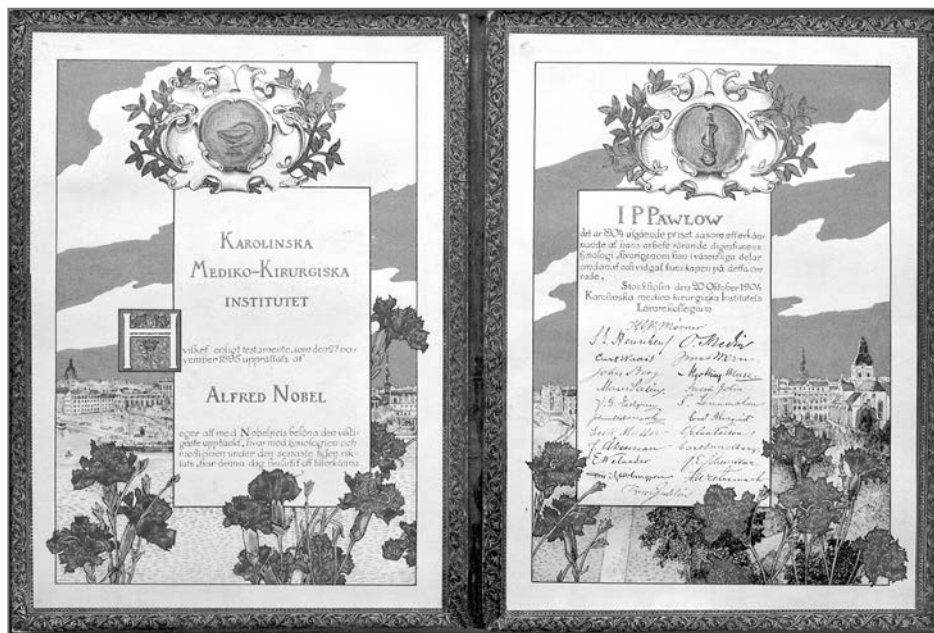 KAROLINSKA
MEDIKO-KIRURGISKA
INSTITUTET
H
vilket enligt testamente, som den 27 no-
vember 1895 upprättats af
ALFRED NOBEL
eger att med Nobelpris belöna den vikti-
gaste upptäckt, hvarmed fysiologien och
medicinen under den senaste tiden rik-
tats, har denna dag beslutit att tillerkänna
I P PAWLOW
det år 1904 utgående priset såsom ett erkän-
nande af hans arbete rörande digestionens
fysiologi, hvarigenom han i väsentliga delar
omdanat och vidgat kunskapen på detta om-
råde.
Stockholm den 20 Oktober 1904
Karolinska mediko-kirurgiska Institutets
Lärarekollegium
K.A.H. Mörner
S. E. Henschen O. Medin
Curt Wallis
John Berg
Erik Müller
J. Åkerman
E. Welander